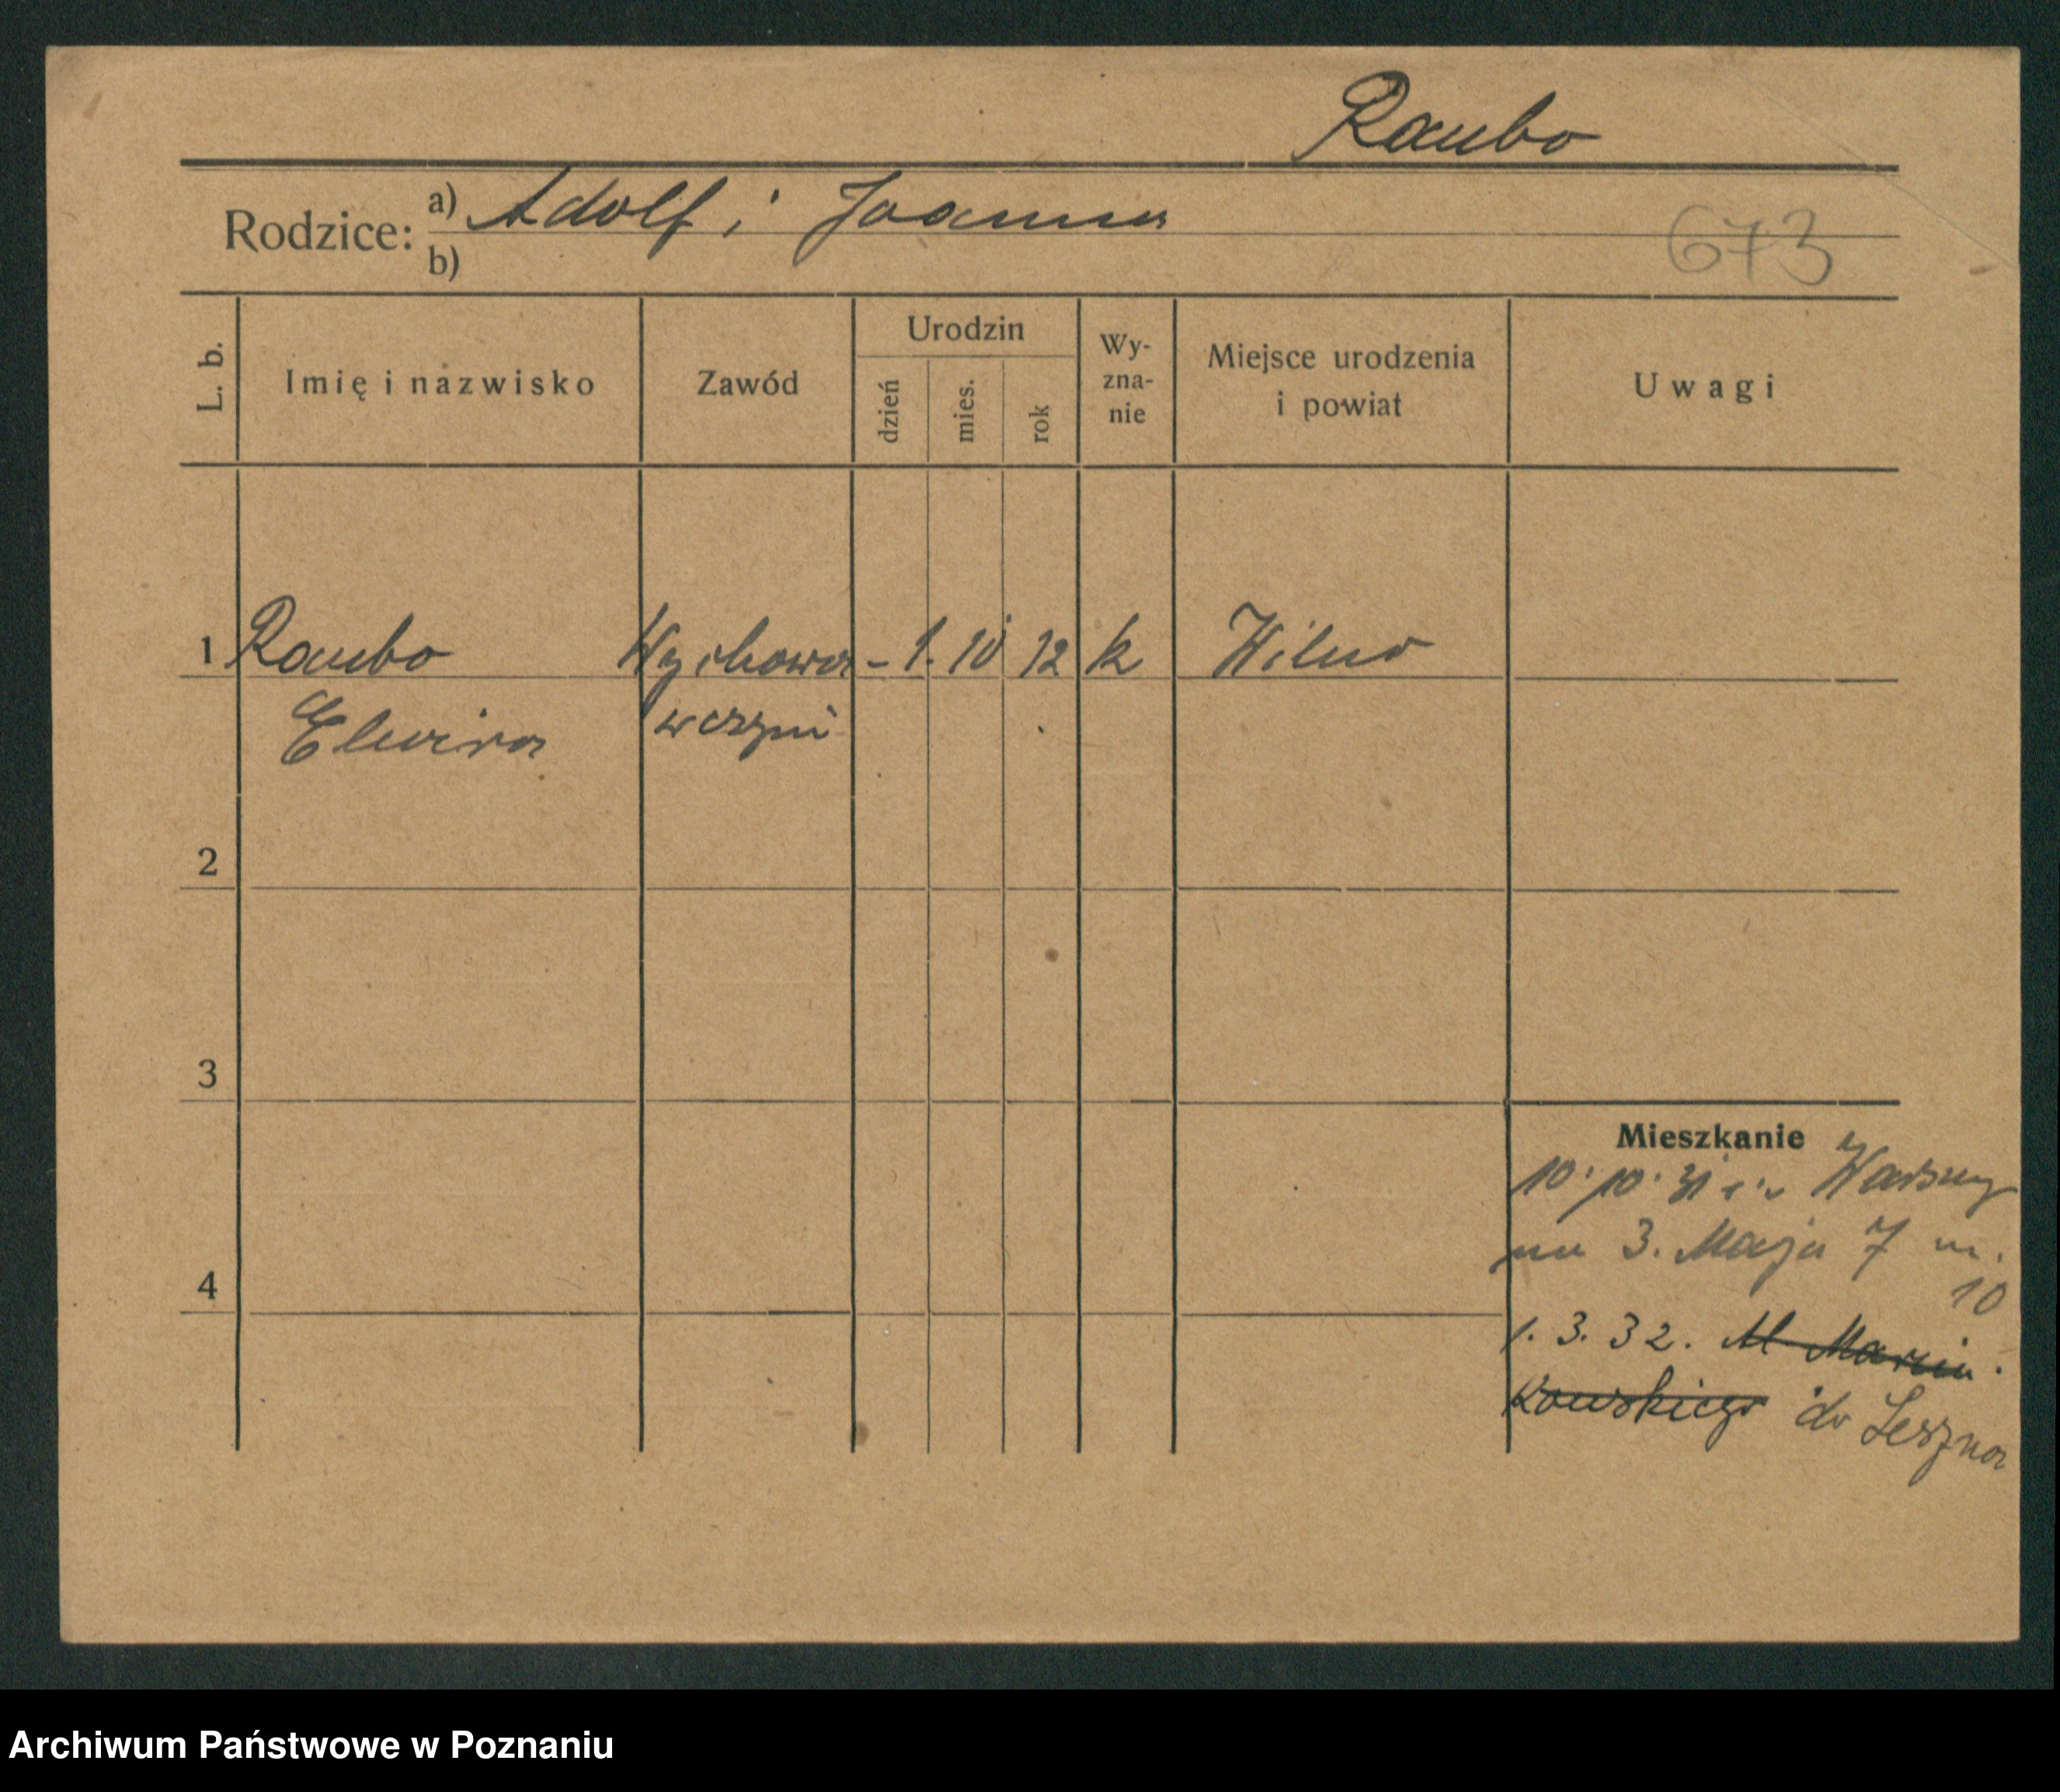 Raubo
Rodzice: a) Adolf i Joanna
b)
673
L. b.
Imię i nazwisko
Zawód
Urodzin
dzień
mies.
rok
Wy-
zna-
nie
Miejsce urodzenia
i powiat
Uwagi
1 Raubo Wychowa- 1. 10 12 k Wilno
Elwira wczyni
2
3
4
Mieszkanie
10. 10. 31
3. Maja 7 m.
10
1. 3. 32. Al Marcin
kowskiego do Leszna
Archiwum Państwowe w Poznaniu